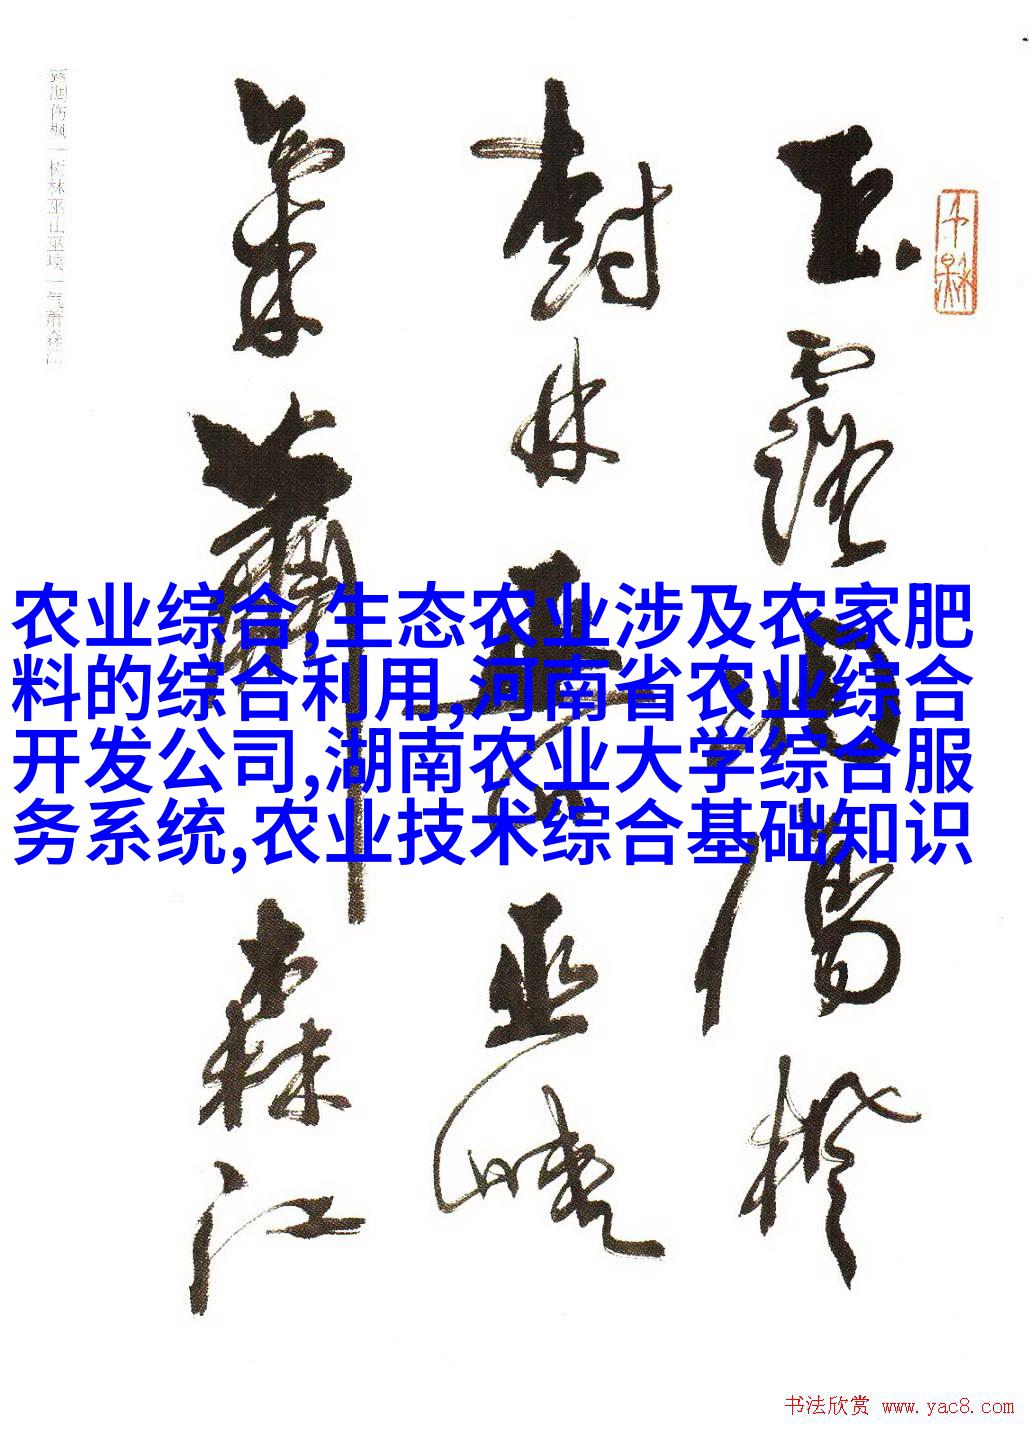 玉露凋傷楓
樹林巫山巫峽
氣蕭森江
露凋伤枫一树林巫山巫峡一气萧森江
农业综合,生态农业涉及农家肥
料的综合利用,河南省农业综合
开发公司,湖南农业大学综合服
务系统,农业技术综合基础知识
书法欣赏 www.yac8.com